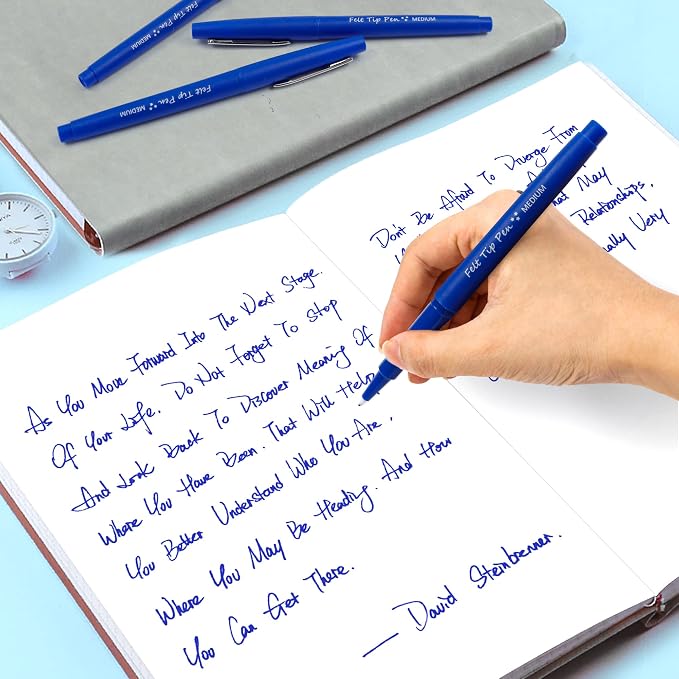 Felt Tip Pen MEDIUM
Felt Tip Pen MEDIUM
Felt Tip Pen MEDIUM
As You Move Forward Into The Next Stage.
Of Your Life. Do Not Forget To Stop
And Look Back To Discover Meaning Of
Where You Have Been. That Will Help
You Better Understand Who You Are.
Where You May Be Heading. And How
You Can Get There.
— David Steinbrenner.
Don't Be Afraid To Diverge From
May
Relationships.
Very
Felt Tip Pen MEDIUM